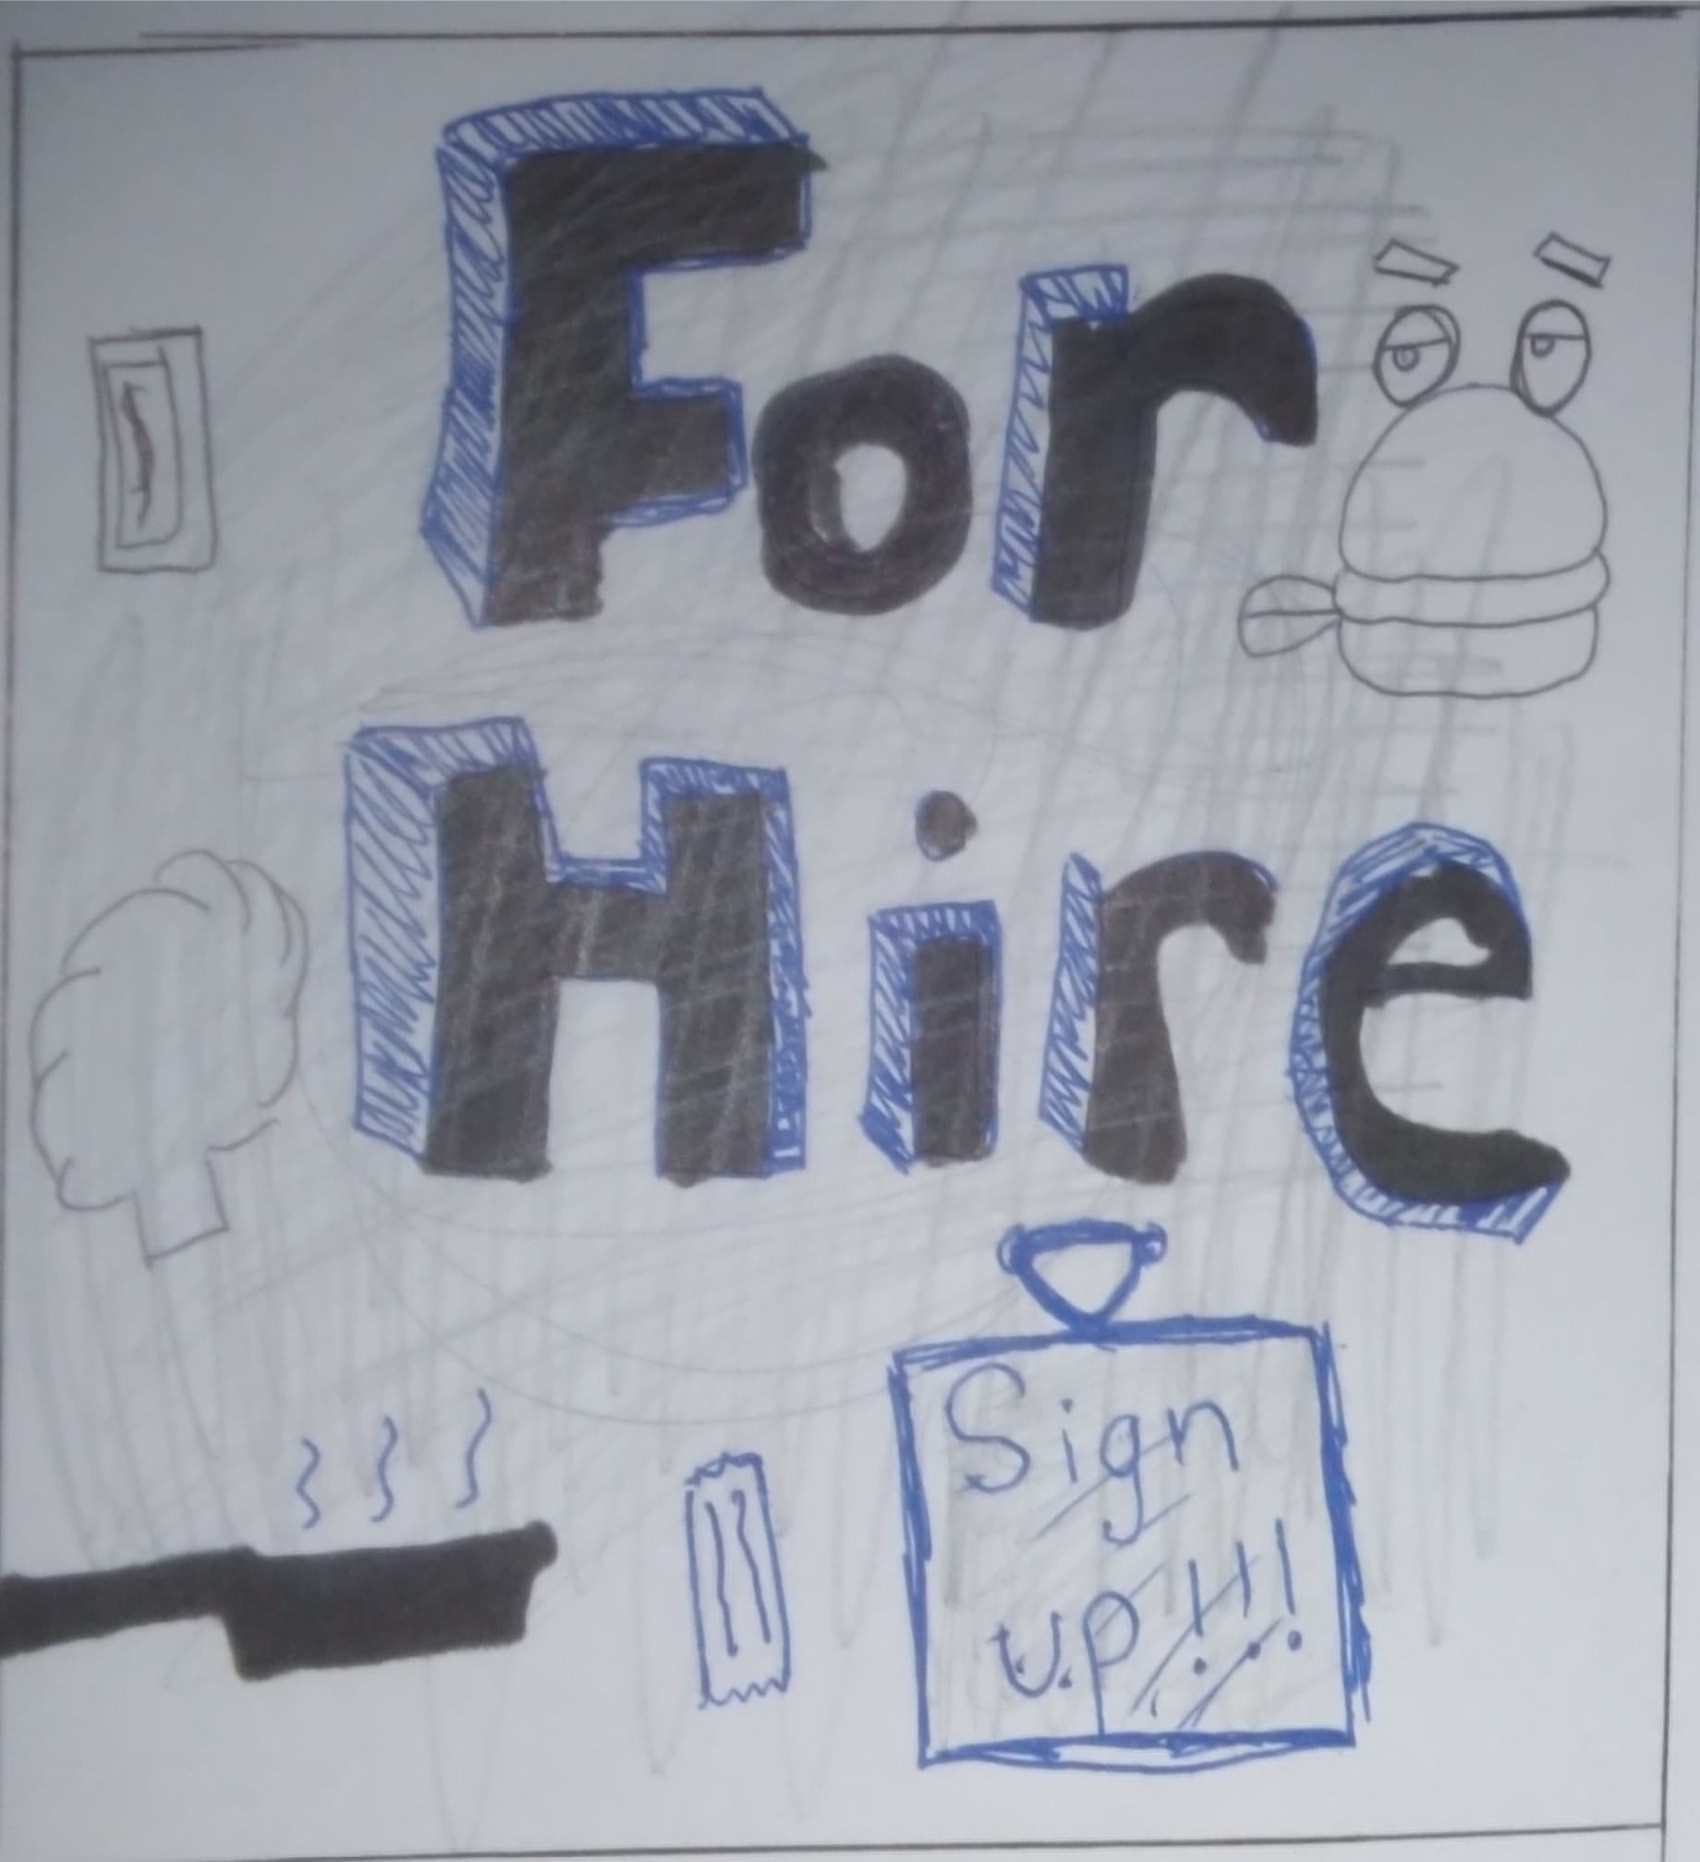 For
Hire
Sign
up!!!